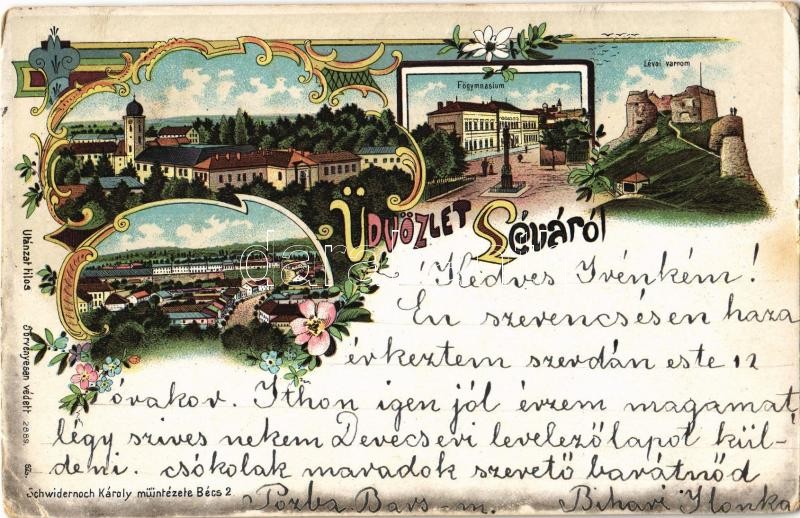 Lévai varrom
Főgymnasium
Üdvözlet Léváról
Kedves Irénkém!
En szerencsésen haza
érkeztem szerdán este 12
órakor. Itthon igen jól érzem magamat,
légy szives nekem Devecseri levelezőlapot kül-
deni. csókolak maradok szerető barátnőd
Pozba Bars-m. Bihari Ilonka
Utánzat tilos
Törvényesen védett 2889.
Schwidernoch Károly műintézete Bécs 2